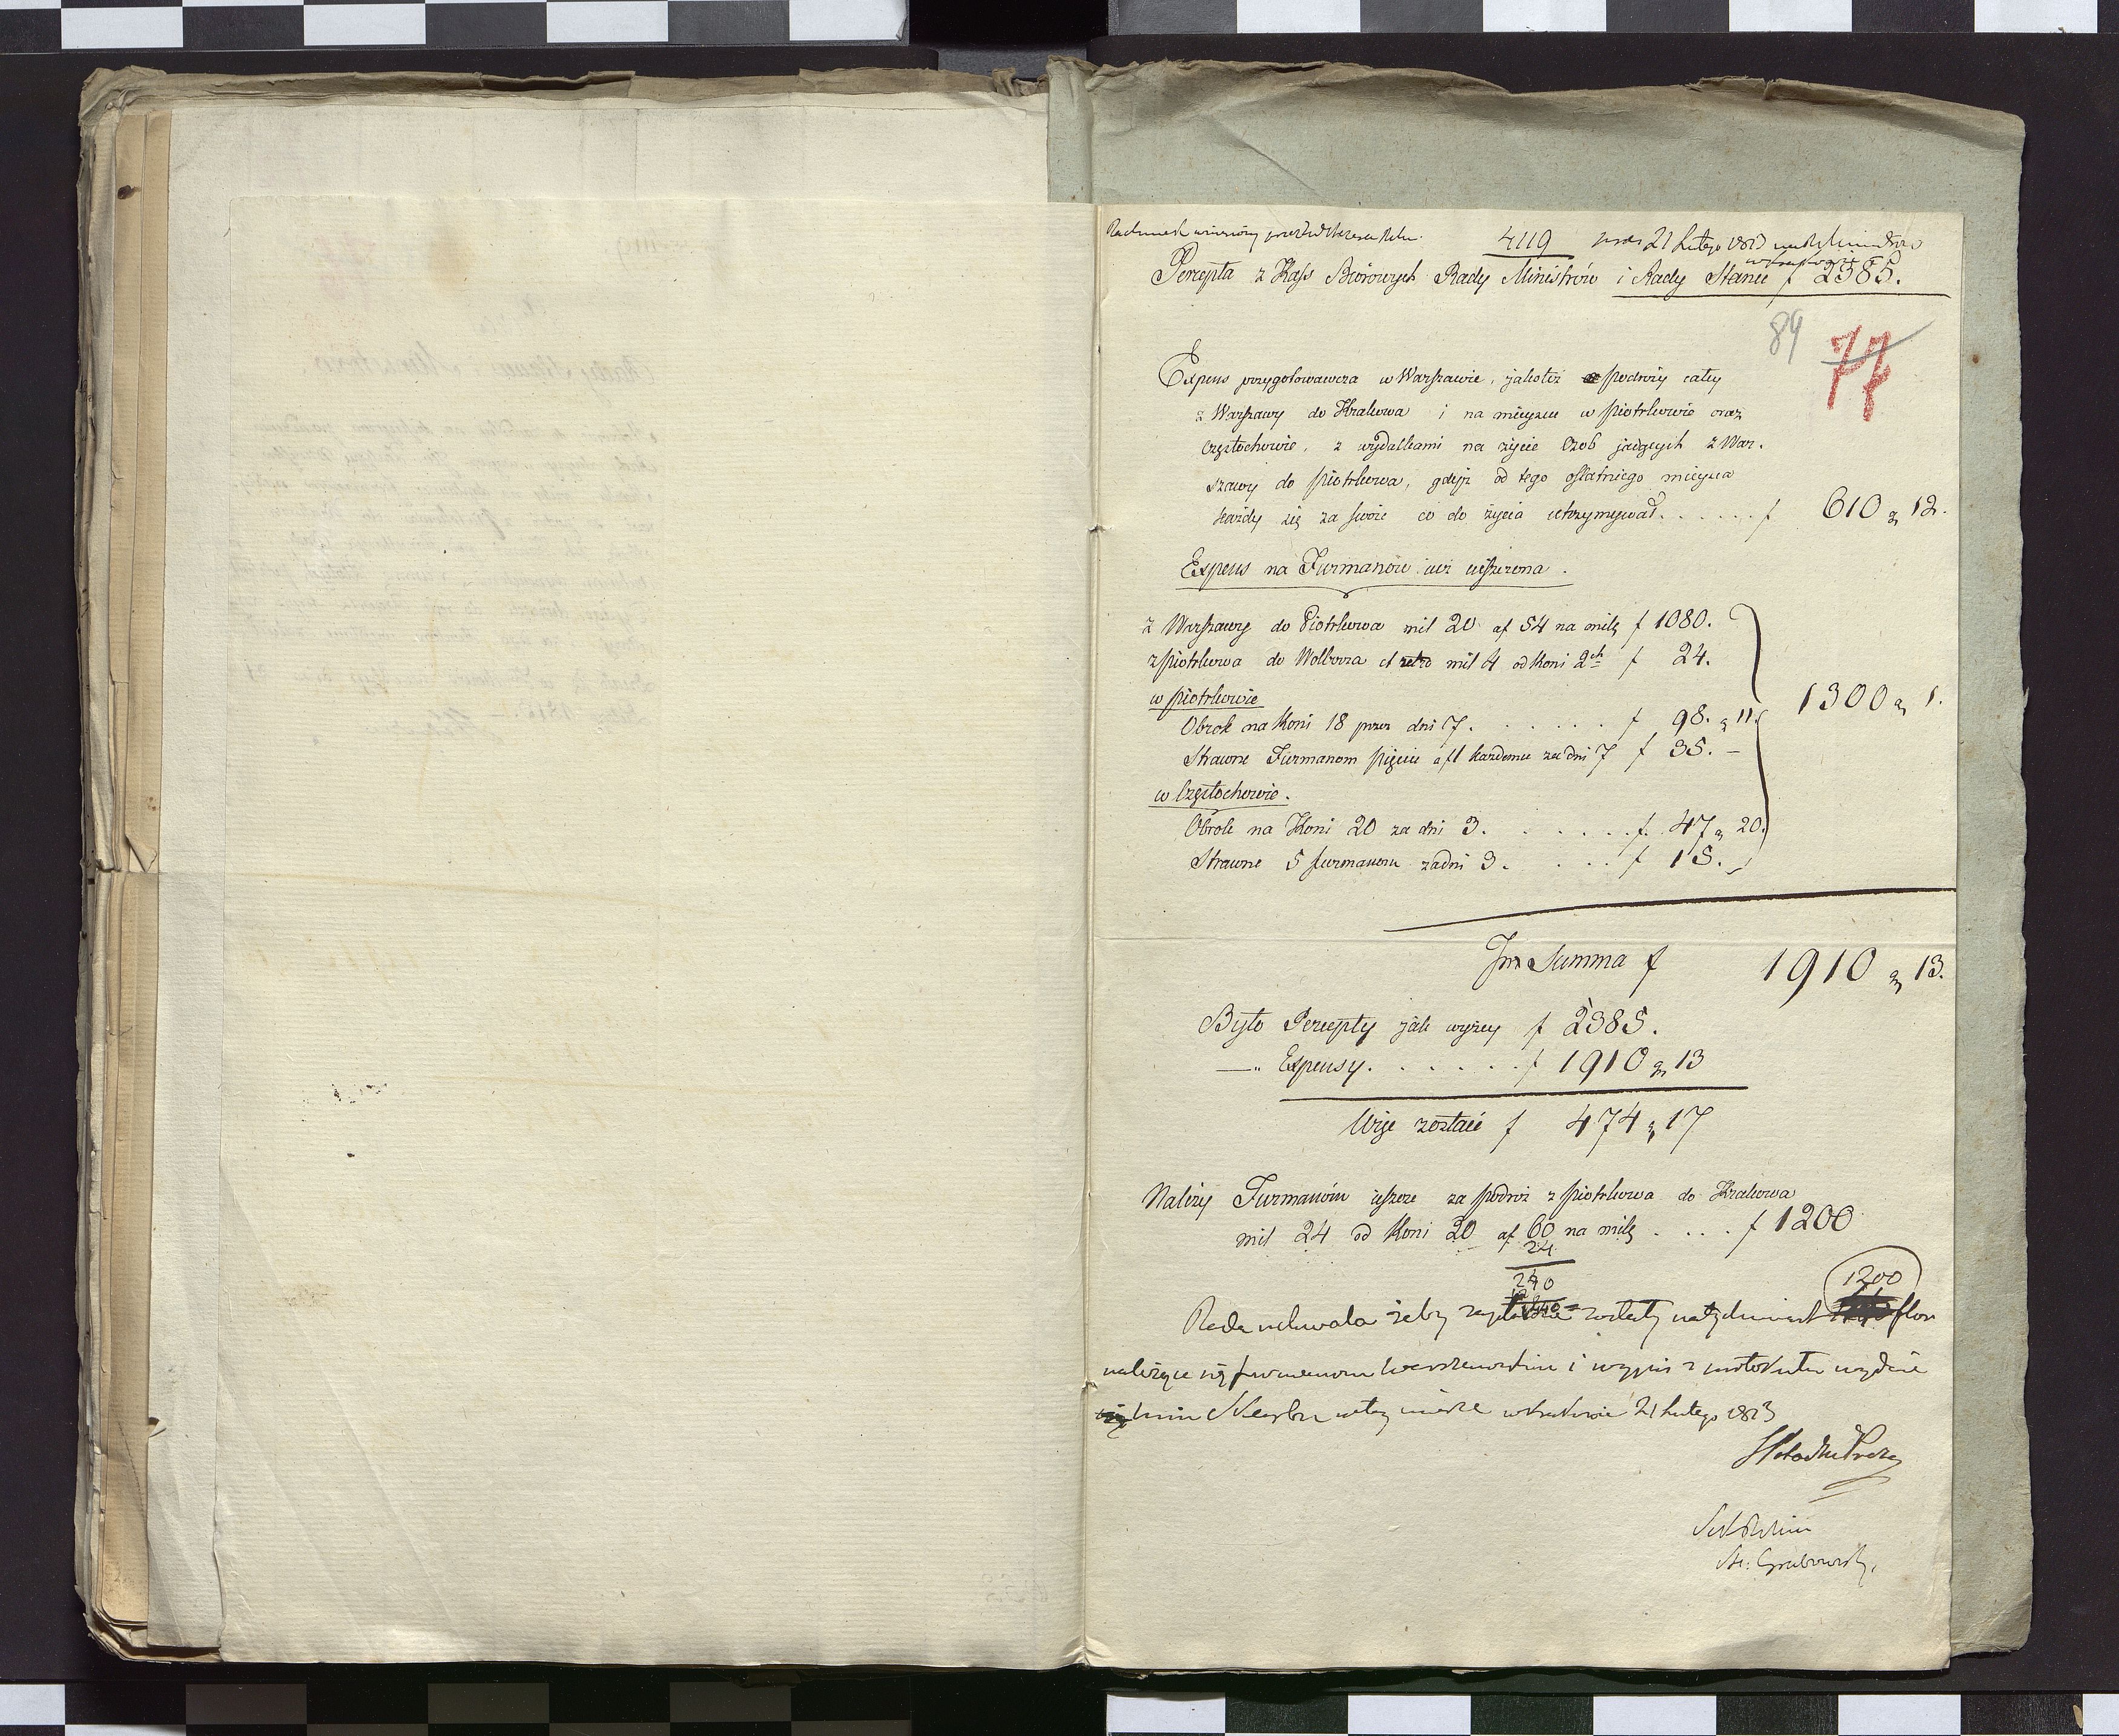 Rachunek wniesiony przez
4119 21 Lutego 1813
Percepta z Kass Biórowych Rady Ministrów i Rady Stanu f 2385.
89 77
Expens przygotowawcza w Warszawie, jakotéż podróży całey
z Warszawy do Krakowa i na mieyscu w Piotrkowie oraz
Częstochowie, z wydatkami na życie Osób jadących z War-
szawy do Piotrkowa, gdyż od tego ostatniego mieysca
każdy się za swoie co do życia utrzymywał . . . . . . f 610 gr 12.
Expens na Furmanów iuż uiszczona.
z Warszawy do Piotrkowa mil 20 af 54 na milę f 1080.
z Piotrkowa do Wolborza et retro mil 4 od Koni 2ch f 24.
w Piotrkowie
Obrok na Koni 18 przez dni 7. . . . . . . f 98. gr 11
Strawne Furmanom pięciu af 1 każdemu za dni 7 f 35. –
1300 gr 1.
w Częstochowie.
Obrok na Koni 20 za dni 3. . . . . . . f. 47 gr 20.
Strawne 5 furmanom za dni 3. . . . . f 15.
Summa f 1910 gr 13.
Było Percepty jak wyżey f 2385.
—„ Expensy. . . . . . . f 1910 gr 13
Więc zostaie f 474 gr 17
Należy Furmanóm ieszcze za podróż z Piotrkowa do Krakowa
mil 24 od Koni 20 af 60 na milę . . . . f 1200
24
240
1200
Rada uchwala żeby zostały natychmiast flor
należące się furmanom warszawskim i wypis z protokułu wydać
w Krakowie 21 Lutego 1813
St: Grabowski